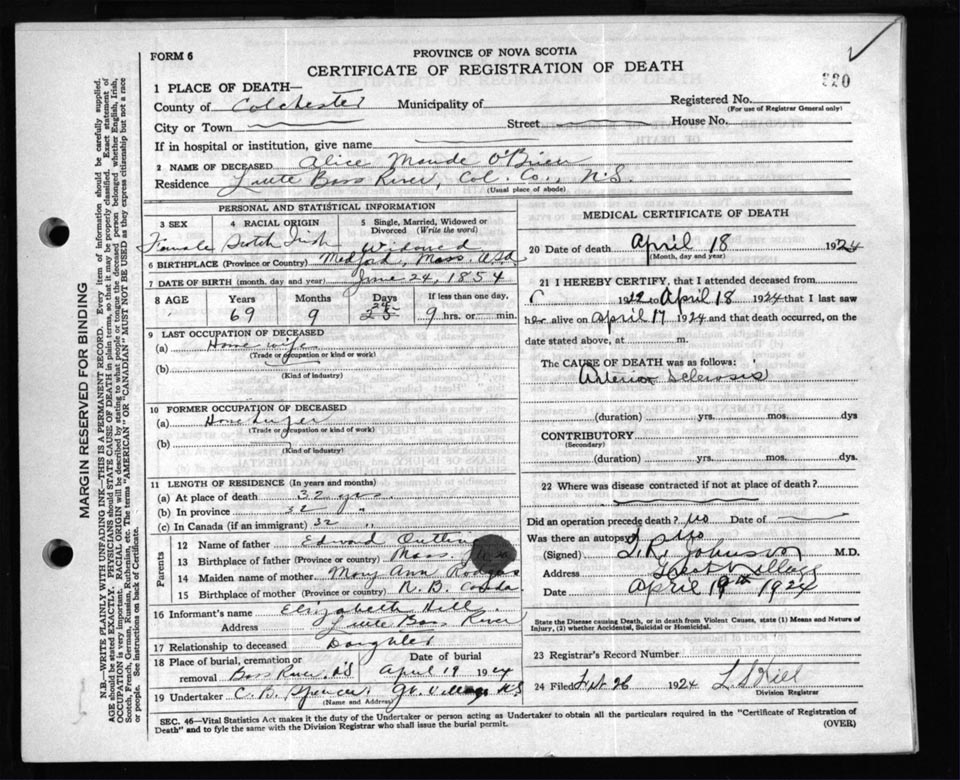 FORM 6
PROVINCE OF NOVA SCOTIA
CERTIFICATE OF REGISTRATION OF DEATH
320
1 PLACE OF DEATH—
County of Colchester Municipality of Registered No.
(For use of Registrar General only)
City or Town Street House No.
If in hospital or institution, give name
2 NAME OF DECEASED Alice Maude O'Brien
Residence Little Bass River, Col. Co., N.S.
(Usual place of abode)
PERSONAL AND STATISTICAL INFORMATION
3 SEX 4 RACIAL ORIGIN 5 Single, Married, Widowed or Divorced (Write the word)
Female Scotch Irish Widowed
6 BIRTHPLACE (Province or Country) Medford, Mass. USA
7 DATE OF BIRTH (month, day and year) June 24, 1854
8 AGE Years Months Days If less than one day,
69 9 25 9 hrs. or min.
9 LAST OCCUPATION OF DECEASED
(a) House wife
(Trade or occupation or kind or work)
(b)
(Kind of industry)
10 FORMER OCCUPATION OF DECEASED
(a)
(Trade or occupation or kind of work)
(b)
(Kind of industry)
11 LENGTH OF RESIDENCE (In years and months)
(a) At place of death 32 yrs.
(b) In province 32 "
(c) In Canada (if an immigrant) 32 "
Parents
12 Name of father Edward
13 Birthplace of father (Province or country) Mass.
14 Maiden name of mother Mary Ann Rodgers
15 Birthplace of mother (Province or country) N.B. Canda.
16 Informant's name Elizabeth Hill
Address Little Bass River
17 Relationship to deceased Daughter
18 Place of burial, cremation or removal Bass River, N.S Date of burial April 19 1924
19 Undertaker C. B. Spencer, Gt. Village N.S.
(Name and Address)
MEDICAL CERTIFICATE OF DEATH
20 Date of death April 18 1924
(Month, day and year)
21 I HEREBY CERTIFY, that I attended deceased from
1922 to April 18 1924 that I last saw
her alive on April 17 1924 and that death occurred, on the
date stated above, at m.
The CAUSE OF DEATH was as follows:
Arterior Sclerosis
(duration) yrs. mos. dys
CONTRIBUTORY
(Secondary)
(duration) yrs. mos. dys.
22 Where was disease contracted if not at place of death?
Did an operation precede death? No Date of
Was there an autopsy? No
(Signed) T.R. Johnson M.D.
Address Great Village
Date April 19th 1924
State the Disease causing Death, or in death from Violent Causes, state (1) Means and Nature of Injury, (2) whether Accidental, Suicidal or Homicidal.
23 Registrar's Record Number
24 Filed 26 1924 L S Hill
Division Registrar
SEC. 46—Vital Statistics Act makes it the duty of the Undertaker or person acting as Undertaker to obtain all the particulars required in the "Certificate of Registration of
Death" and to fyle the same with the Division Registrar who shall issue the burial permit.
(OVER)
MARGIN RESERVED FOR BINDING
N.B.—WRITE PLAINLY WITH UNFADING INK—THIS IS A PERMANENT RECORD. Every item of information should be carefully supplied.
AGE should be stated EXACTLY. PHYSICIANS should STATE CAUSE OF DEATH in plain terms, so that it may be properly classified. Exact statement of
OCCUPATION is very important. RACIAL ORIGIN will be described by stating to what people or tongue the deceased person belonged whether English, Irish,
Scotch, French, German, Russian, Ruthenian, etc. The terms "AMERICAN" OR "CANADIAN" MUST NOT BE USED as they express citizenship but not a race
or people. See instructions on back of Certificate.